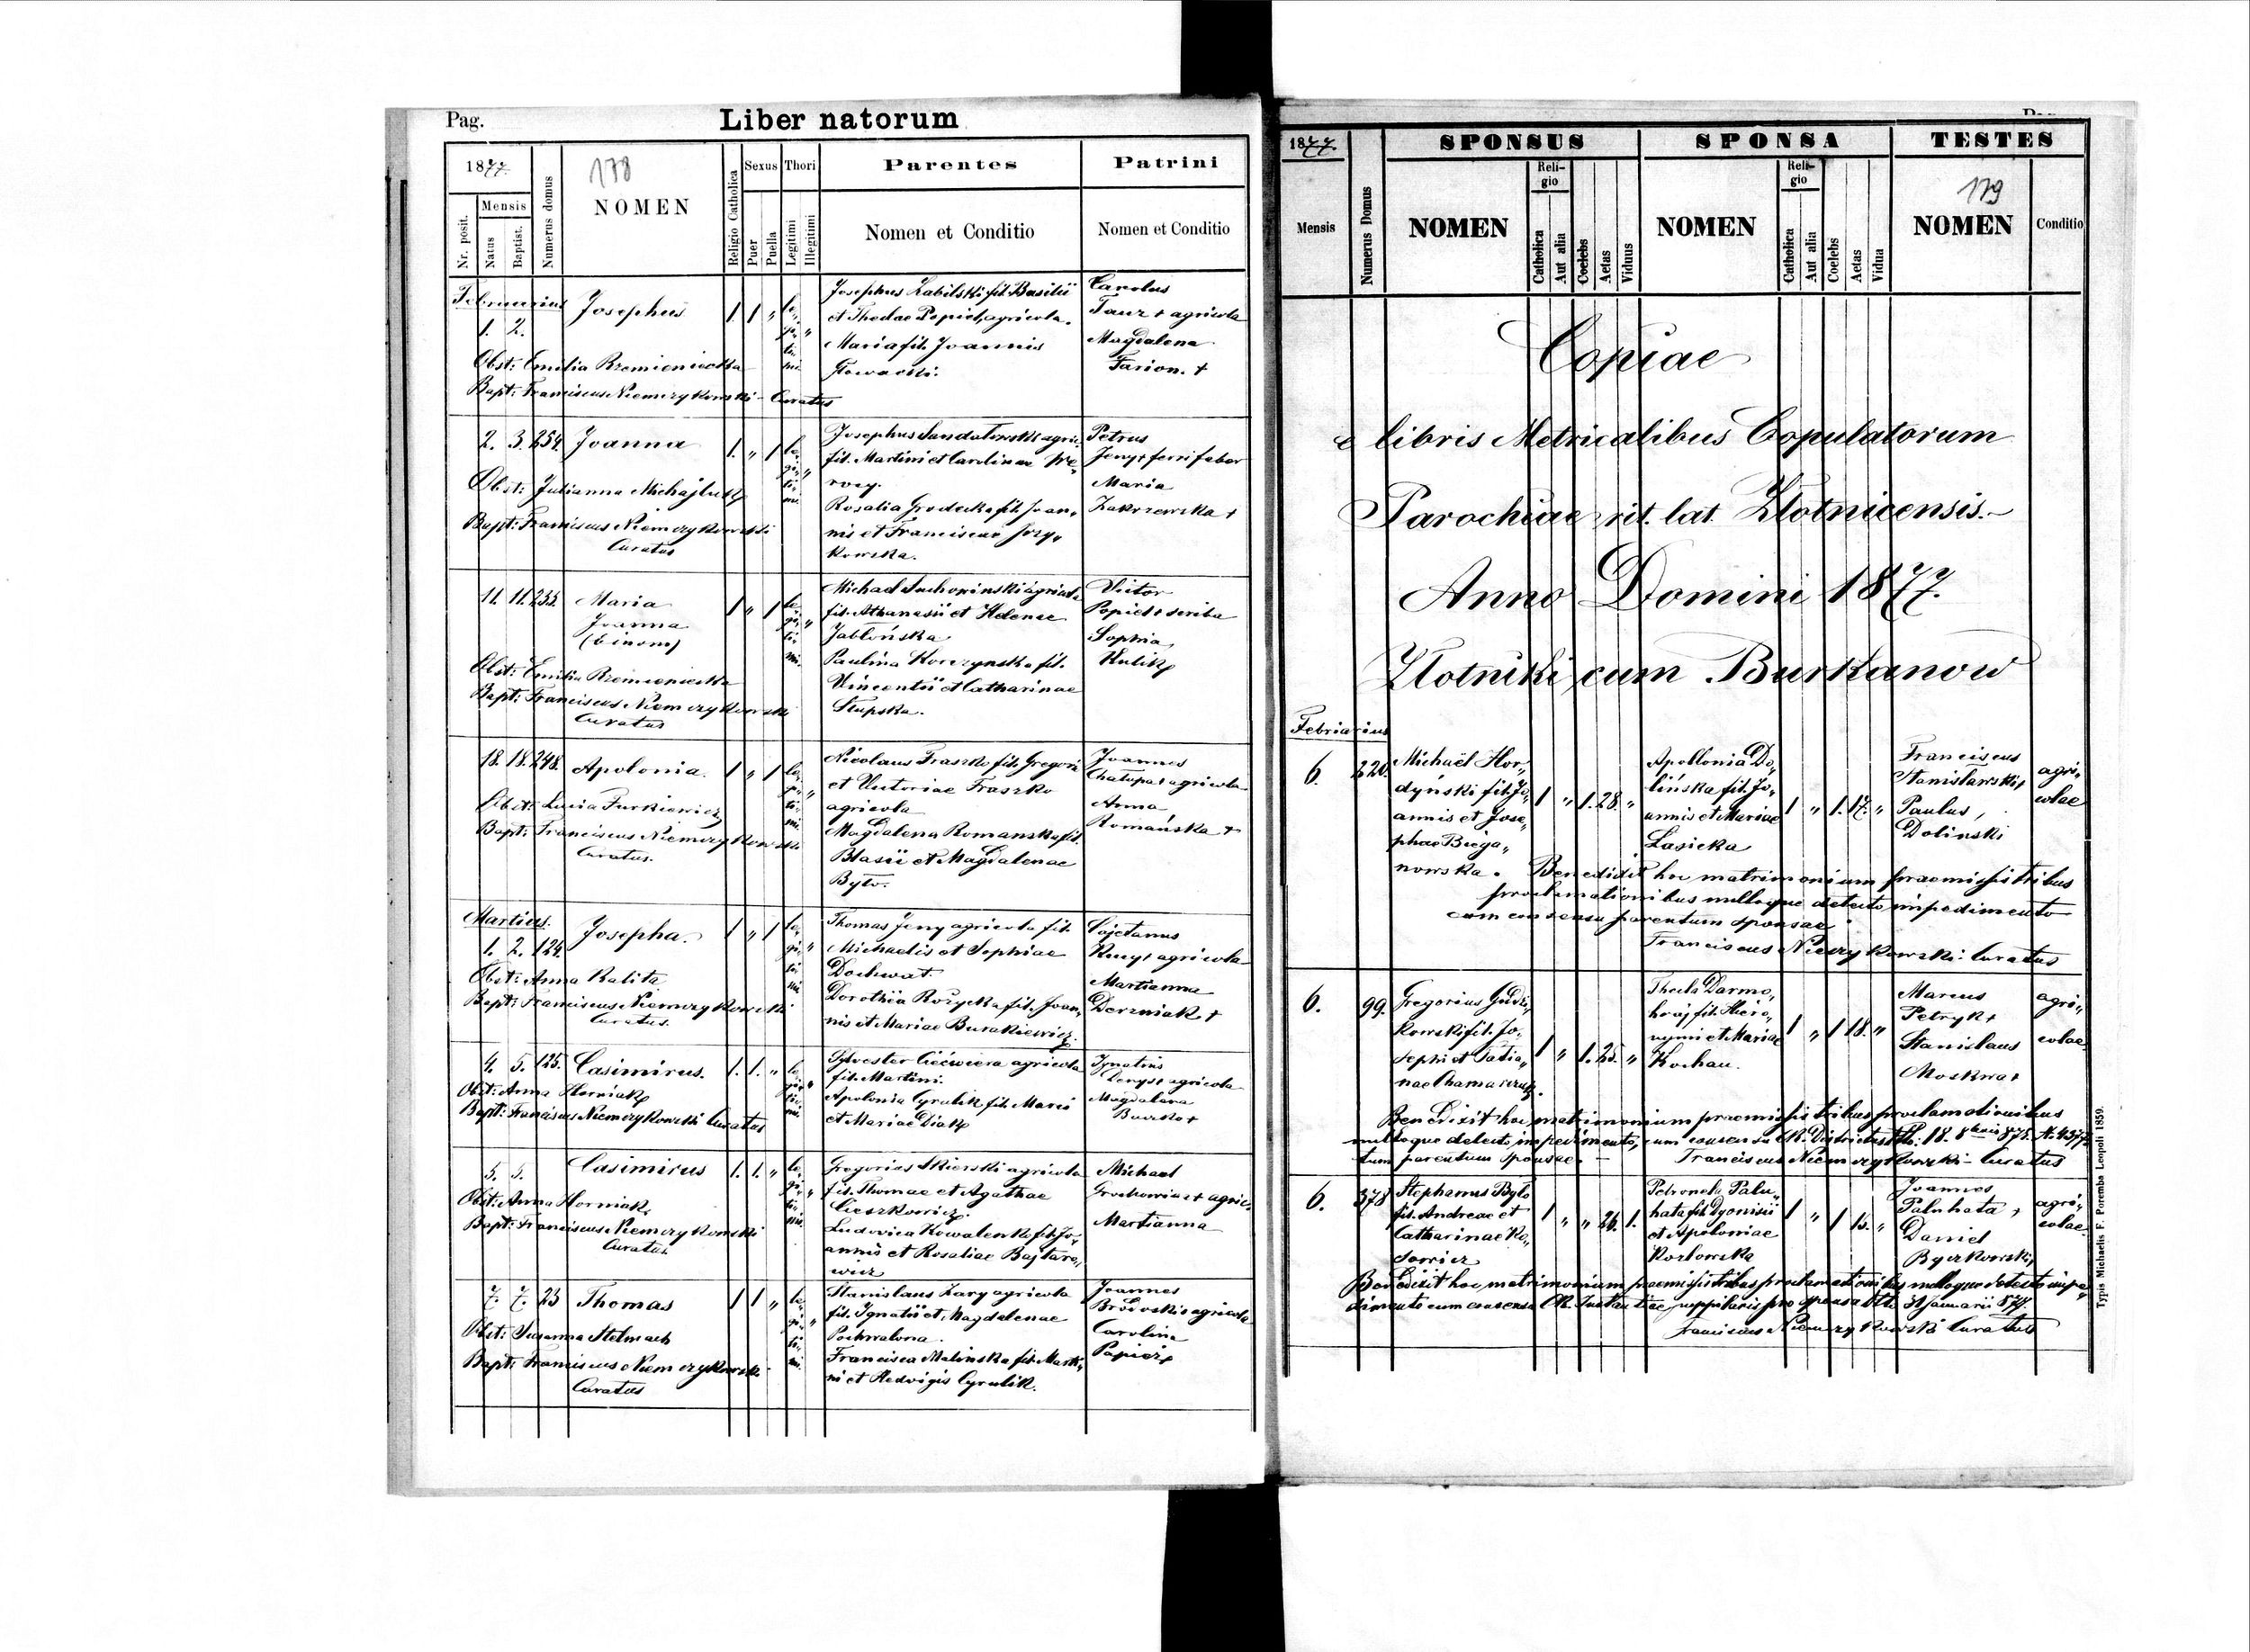 Pag.
Liber natorum
1877.
178
Nr. posit.
Mensis
Natus
Baptist.
Numerus domus
NOMEN
Religio Catholica
Sexus
Puer
Puella
Thori
Legitimi
Illegitimi
Parentes
Nomen et Conditio
Patrini
Nomen et Conditio
Februarius
1. 2.
Josephus
1. 1 „
le„
gi„ „
ti„
mi.
Josephus Zabilski fil. Basilii
et Theclae Popiel, agricola.
Maria fil. Joannis
Głowacki.
Carolus
Tauz + agricola
Magdalena
Farion. +
Obst: Emilia Rzemieniecka
Bapt: Franciscus Niemczykowski - Curatus
2. 3. 254.
Joanna
1. „ 1
le„
gi„ „
ti„
mi.
Josephus Sandałowski agric.
fil. Martini et Carolinae
Rosalia Grodecka fil. Joan„
nis et Franciscae Jozy„
kowska.
Petrus
Jeny + ferri faber
Maria
Zakrzewska +
Obst: Julianna
Bapt: Franciscus Niemczykowski
Curatus
11. 11. 233.
Maria
Joanna
(binom)
1 „ 1
le„
gi„ „
ti„
mi.
Michael Suchoninski agricola
fil. Athanasii et Helenae
Jabłońska
Paulina Korczynska fil.
Vincentii et Catharinae
Słupska.
Victor
Popiel + scriba
Sophia
Kulik +
Obst: Emilia Rzemieniecka
Bapt: Franciscus Niemczykowski
Curatus
18. 18. 248.
Apolonia.
1 „ 1
le„
gi„ „
ti„
mi.
Nicolaus Fraszko fil. Gregorii
et Victoriae Fraszko
agricola
Magdalena Romanska fil.
Blasii et Magdalenae
Byto.
Joannes
Chałupa + agricola
Anna
Romańska +
Obst: Lucia Furkiewicz
Bapt: Franciscus Niemczykowski
Curatus.
Martius.
1. 2. 124.
Josepha.
1 „ 1
le„
gi„ „
ti„
mi.
Thomas Jeny agricola fil.
Michaelis et Sophiae
Dochwat.
Dorothea Rożycka fil. Joan„
nis et Mariae Burakiewicz.
Cajetanus
agricola
Martianna
Derzniak +
Obst: Anna Kalita
Bapt: Franciscus Niemczykowski
Curatus.
4. 5. 125.
Casimirus.
1. 1. „
le„
gi„ „
ti„
mi.
Sylvester Ciećwiera agricola
fil. Martini.
Apolonia Cyrulik fil. Marci
et Mariae Diak
Ignatius
Denys + agricola
Magdalena
Burko +
Obst: Anna Horniak
Bapt: Franciscus Niemczykowski Curatus
5. 5.
Casimirus
1. 1. „
le„
gi„ „
ti„
mi.
Gregorius Skierski agricola
fil. Thomae et Agathae
Cieszkowicz.
Ludovica Kowalenko fil. Jo„
annis et Rosaliae Bajtaro„
wicz
Michael
Grochowina + agric.
Martianna
Obst: Anna Horniak
Bapt: Franciscus Niemczykowski
Curatus
7. 7. 23
Thomas
1 1 „
le„
gi„ „
ti„
mi.
Stanislaus Zary agricola
fil. Ignatii et Magdalenae
Pochwalona.
Francisca Malinska fil. Marti„
ni et Hedvigis Cyrulik.
Joannes
Brodowski + agricola
Carolina
Papież +
Obst: Susanna Stelmach
Bapt: Franciscus Niemczykowski
Curatus
1877.
Mensis
Numerus Domus
SPONSUS
NOMEN
Reli-
gio
Catholica
Aut alia
Coelebs
Aetas
Viduus
SPONSA
NOMEN
Reli-
gio
Catholica
Aut alia
Coelebs
Aetas
Vidua
TESTES
179
NOMEN
Conditio
Copiae
e libris Metricalibus Copulatorum
Parochiae rit. lat. Złotnicensis.-
Anno Domini 1877.
Złotniki cum Burkanow
Febriarius
6. 220.
Michaël Hor„
dyński fil. Jo„
annis et Jose„
phae Biega„
nowska.
1 „ 1. 28. „
Apollonia Do„
lińska fil. Jo„
annis et Mariae
Lasicka
1 „ 1. 17. „
Franciscus
Stanisławski,
Paulus,
Dolinski
agri„
colae
Benedixit hoc matrimonium praemissis tribus
proclamationibus nulloque detecto impedimento
cum consensu parentum sponsae
Franciscus Niemczykowski: Curatus
6. 99.
Gregorius Gudzi„
kowski fil. Jo„
sephi et Tatia„
nae
1 „ 1. 25. „
Thecla Darmo„
hraj fil. Hiero„
nymi et Mariae
Kochan.
1 „ 1 18. „
Marcus
Petryk +
Stanislaus
Moskwa +
agri„
colae
Benedixit hoc matrimonium praemissis tribus proclamationibus
nulloque detecto impedimento, cum consensu
tum parentum sponsae.-
Franciscus Niemczykowski - Curatus
6. 378
Stephanus Byto
fil. Andreae et
Catharinae Ko„
1 „ „ 26. 1.
Petronela Palu„
hata fil. Dyonisii
et Apoloniae
Kozłowska
1 „ 1 15. „
Joannes
Paluhata +
Daniel
Byczkowski,
agri„
colae
Benedixit hoc matrimonium praemissis tribus proclamationibus nulloque detecto impe„
dimento cum consensu Instantiae puppilaris pro sponsa dto 31 Januarii 877.
Franciscus Niemczykowski Curatus
Typis Michaelis F. Poremba Leopoli 1859.